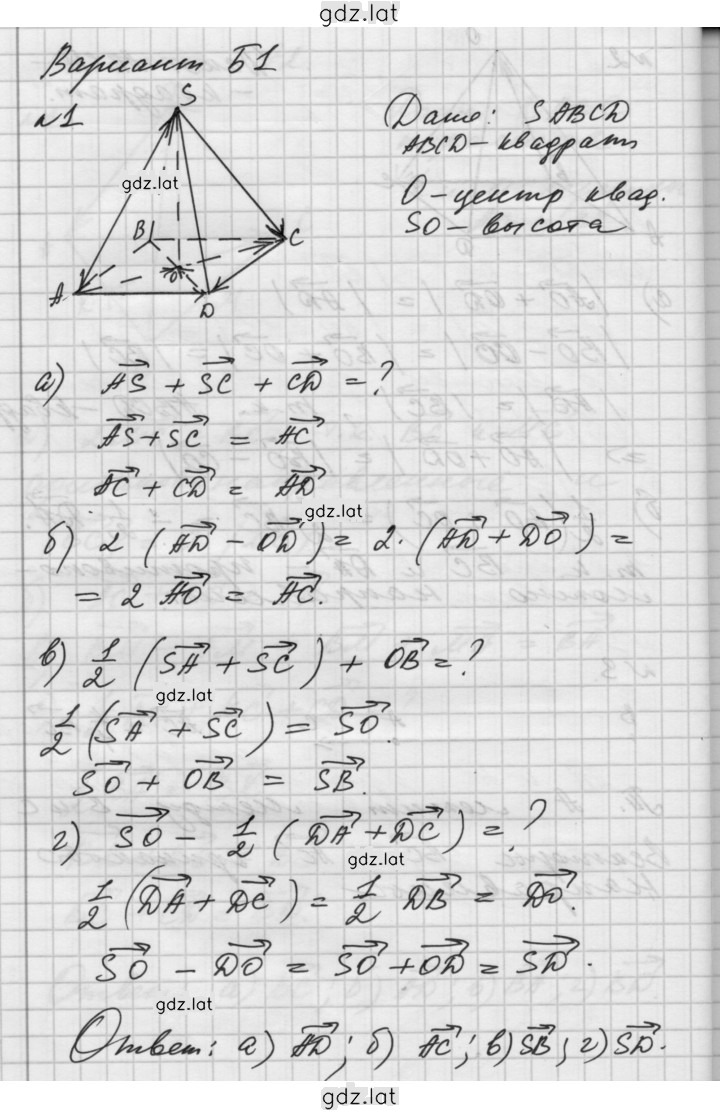 gdz.lat
Вариант Б1
№1
S
gdz.lat
B
C
O
A
D
Дано: SABCD
ABCD – квадрат
O – центр квад.
SO – высота
а) AS⃗ + SC⃗ + CD⃗ = ?
AS⃗ + SC⃗ = AC⃗
AC⃗ + CD⃗ = AD⃗
gdz.lat
б) 2 (AD⃗ – OD⃗) = 2·(AD⃗ + DO⃗) =
= 2 AO⃗ = AC⃗.
в) 1/2 (SA⃗ + SC⃗) + OB⃗ = ?
gdz.lat
1/2 (SA⃗ + SC⃗) = SO⃗.
SO⃗ + OB⃗ = SB⃗.
г) SO⃗ – 1/2 (DA⃗ + DC⃗) = ?
gdz.lat
1/2 (DA⃗ + DC⃗) = 1/2 DB⃗ = DO⃗.
SO⃗ – DO⃗ = SO⃗ + OD⃗ = SD⃗.
gdz.lat
Ответ: а) AD⃗; б) AC⃗; в) SB⃗; г) SD⃗.
gdz.lat